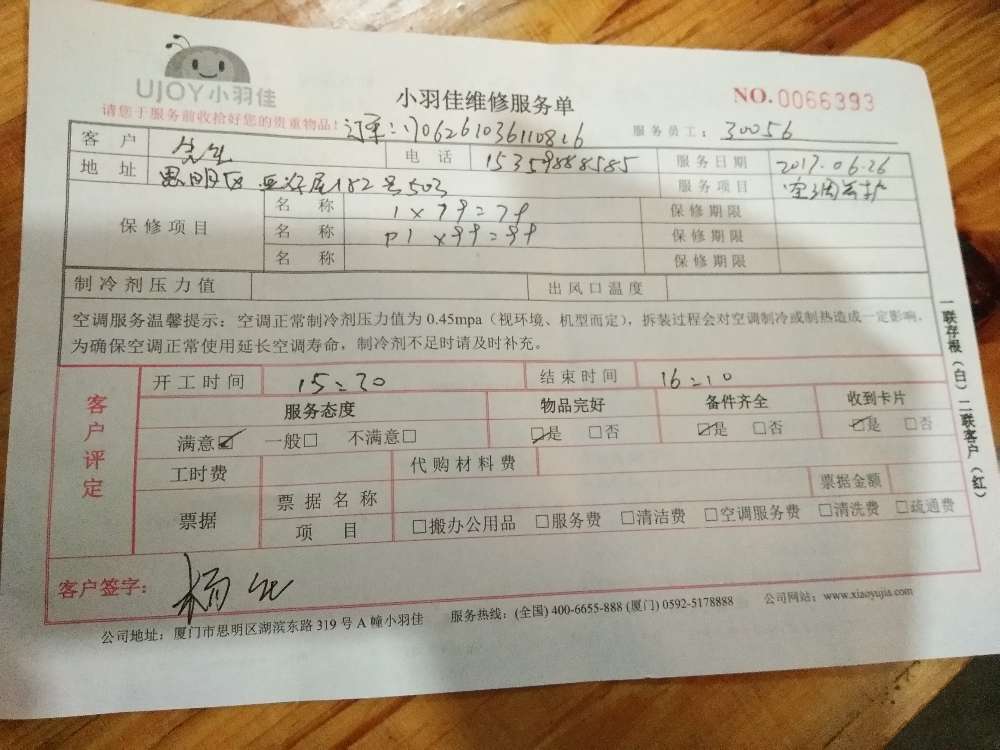 UJOY小羽佳
小羽佳维修服务单
NO.0066393
请您于服务前收拾好您的贵重物品！
订单：1706261036110816
服务员工：30056
客 户 先生 电 话 15359888585 服务日期 2017.06.26
地 址 思明区 182号503 服务项目 空调
保修项目 名 称 1×7f=7f 保修期限
名 称 P1×9f=9f 保修期限
名 称 保修期限
制冷剂压力值 出风口温度
空调服务温馨提示：空调正常制冷剂压力值为 0.45mpa（视环境、机型而定），拆装过程会对空调制冷或制热造成一定影响，
为确保空调正常使用延长空调寿命，制冷剂不足时请及时补充。
客户评定
开工时间 15:30 结束时间 16:10
服务态度 物品完好 备件齐全 收到卡片
满意☑ 一般□ 不满意□ ☑是 □否 ☑是 □否 ☑是 □否
工时费 代购材料费
票据 票据名称 票据金额
项 目 □搬办公用品 □服务费 □清洁费 □空调服务费 □清洗费 □疏通费
客户签字： 杨
公司地址：厦门市思明区湖滨东路 319 号 A 幢小羽佳 服务热线：(全国) 400-6655-888 (厦门) 0592-5178888 公司网站：www.xiaoyujia.com
一联存根（白）二联客户（红）